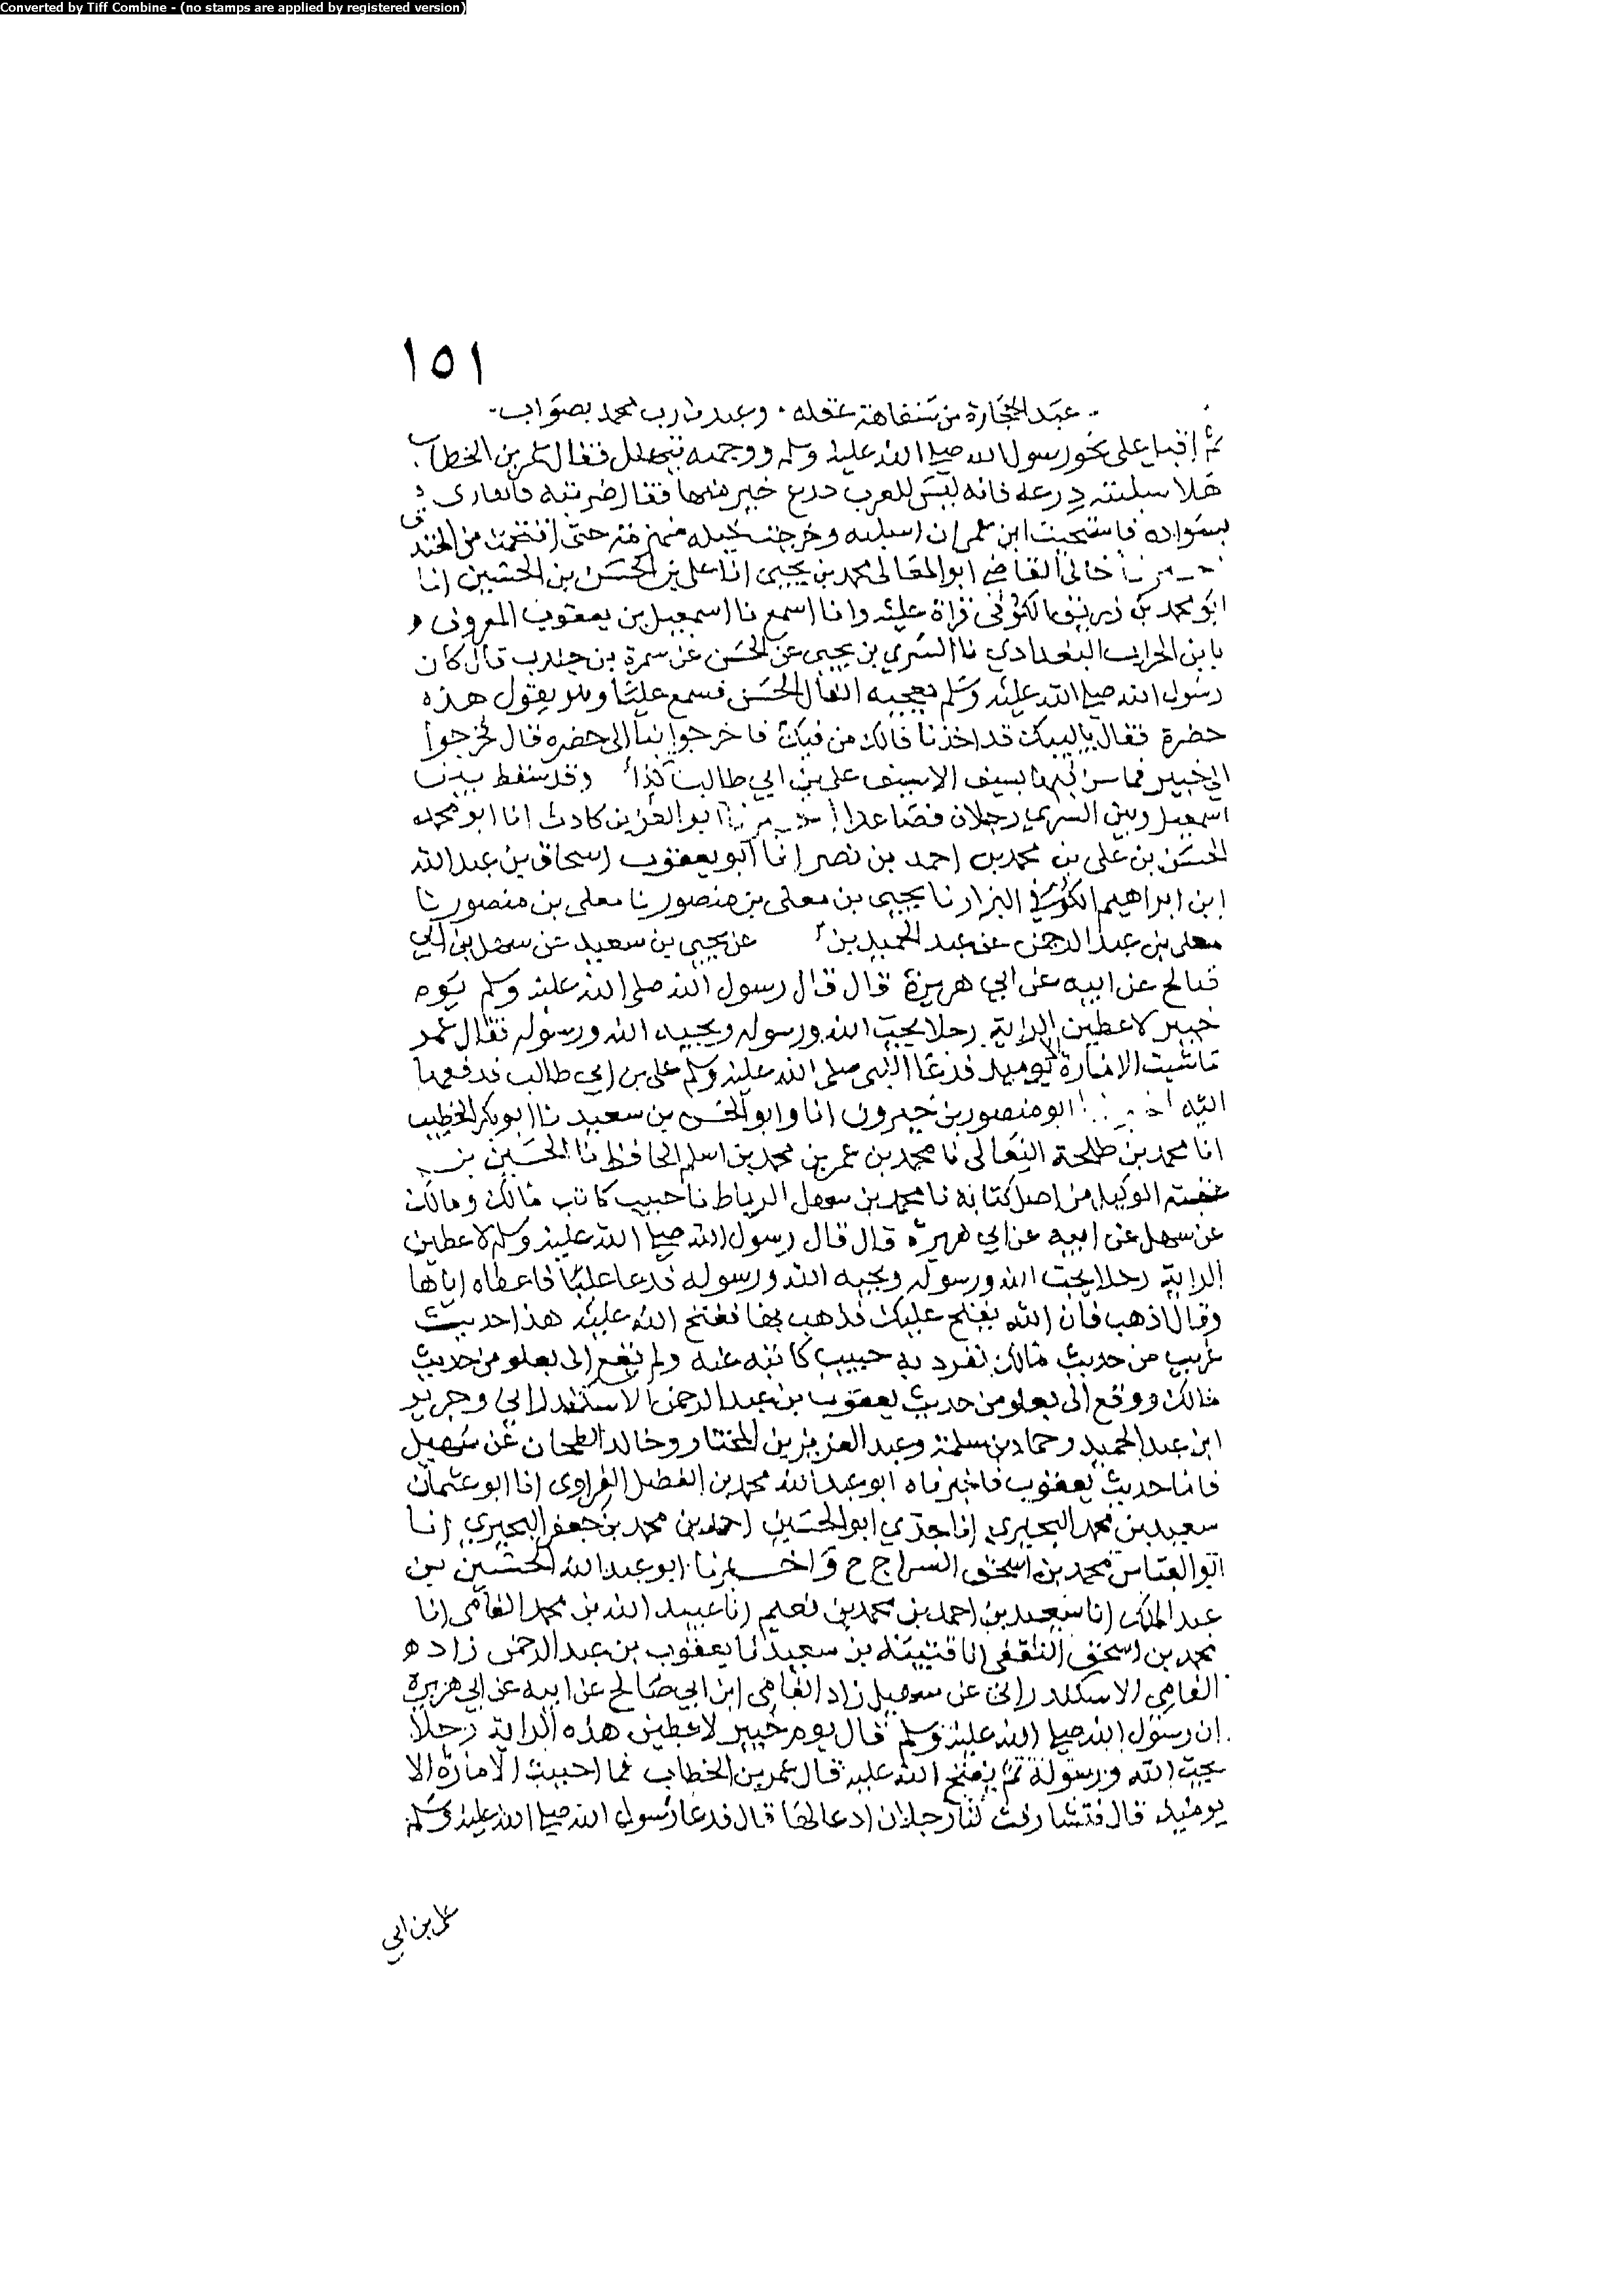 Converted by Tiff Combine - (no stamps are applied by registered version)
١٥١
عبد الحجارة من سفاهة عقله وعبدت رب محمد بصواب
ثم اقبل علي نحو رسول الله صلى الله عليه وسلم ووجهه يتهلل فقال عمر بن الخطاب
هلا سلبته درعه فانه ليس للعرب درع خير منها فقال ضربته فاتقاني
بسواده فاستحييت ابن عمي ان اسلبه وخرجت خيله منهزمة حتى اقتحمت من الخندق
خالي القاضي ابو المعالي محمد بن يحيى انا علي بن الحسن بن الحسين انا
ابو محمد بن الكوفي قراة عليه وانا اسمع نا اسمعيل بن يعقوب المعروف
بابن الجراب البغدادي نا السري بن يحيى عن الحسن عن سمرة بن جندب قال كان
رسول الله صلى الله عليه وسلم يعجبه الفال الحسن فسمع عليا وهو يقول هذه
خضرة فقال يا لبيك قد اخذنا فالك من فيك فاخرجوا بنا الى خضره قال فخرجوا
الى خيبر فما سل فيها سيف الا سيف علي بن ابي طالب كذا وقد سقط بين
اسمعيل وبين السري رجلان فصاعدا ابو العز بن كادش انا ابو محمد
الحسن بن علي بن محمد بن احمد بن نصر انا ابو يعقوب اسحاق بن عبد الله
ابن ابراهيم الكوفي البزار نا يحيى بن معلى بن منصور نا معلى بن منصور نا
معلى بن عبد الرحمن عن عبد الحميد بن عن يحيى بن سعيد عن سهل بن ابي
صالح عن ابيه عن ابي هريرة قال قال رسول الله صلى الله عليه وسلم يوم
خيبر لاعطين الراية رجلا يحب الله ورسوله ويحبه الله ورسوله فقال عمر
الامارة الا يوميذ فدعا النبي صلى الله عليه وسلم علي بن ابي طالب فدفعها
اليه ابو منصور بن خيرون انا وابو الحسن بن سعيد نا ابو بكر الخطيب
انا محمد بن طلحة النعالي نا محمد بن عمر بن محمد بن اسلم الحافظ نا الحسين بن
الوكيل من اصل كتابه نا محمد بن سهل الرباط نا حبيب كاتب مالك ومالك
عن سهل عن ابيه عن ابي هريرة قال قال رسول الله صلى الله عليه وسلم لاعطين
الراية رجلا يحب الله ورسوله ويحبه الله ورسوله فدعا عليا فاعطاه اياها
وقال اذهب فان الله يفتح عليك فذهب بها ففتح الله عليه هذا حديث
غريب من حديث مالك تفرد به حبيب كاتبه عنه ولم يقع الى بعلو من حديث
مالك ووقع الى بعلو من حديث يعقوب بن عبد الرحمن الاسكندراني وجرير
ابن عبد الحميد وحماد بن سلمة وعبد العزيز بن المختار وخالد الطحان عن سهيل
فاما حديث يعقوب فاخبرناه ابو عبد الله محمد بن الفضل الفراوي انا ابو عثمان
سعيد بن محمد البحيري انا جدي ابو الحسين احمد بن محمد بن جعفر البحيري انا
ابو العباس محمد بن اسحق السراج ح واخبرنا ابو عبد الله الحسين بن
عبد الملك انا سعيد بن احمد بن محمد بن نعيم انا عبيد الله بن محمد الفامي انا
محمد بن اسحق الثقفي انا قتيبة بن سعيد نا يعقوب بن عبد الرحمن زاده
الفامي الاسكندراني عن سهيل زاد الفامي ابن ابي صالح عن ابيه عن ابي هريرة
ان رسول الله صلى الله عليه وسلم قال يوم خيبر لاعطين هذه الراية رجلا
يحب الله ورسوله ثم يفتح الله عليه قال عمر بن الخطاب فما احببت الامارة الا
يومئيذ قال فتشارفت لها رجلان ادعا لها قال فدعا رسول الله صلى الله عليه وسلم
علي بن ابي